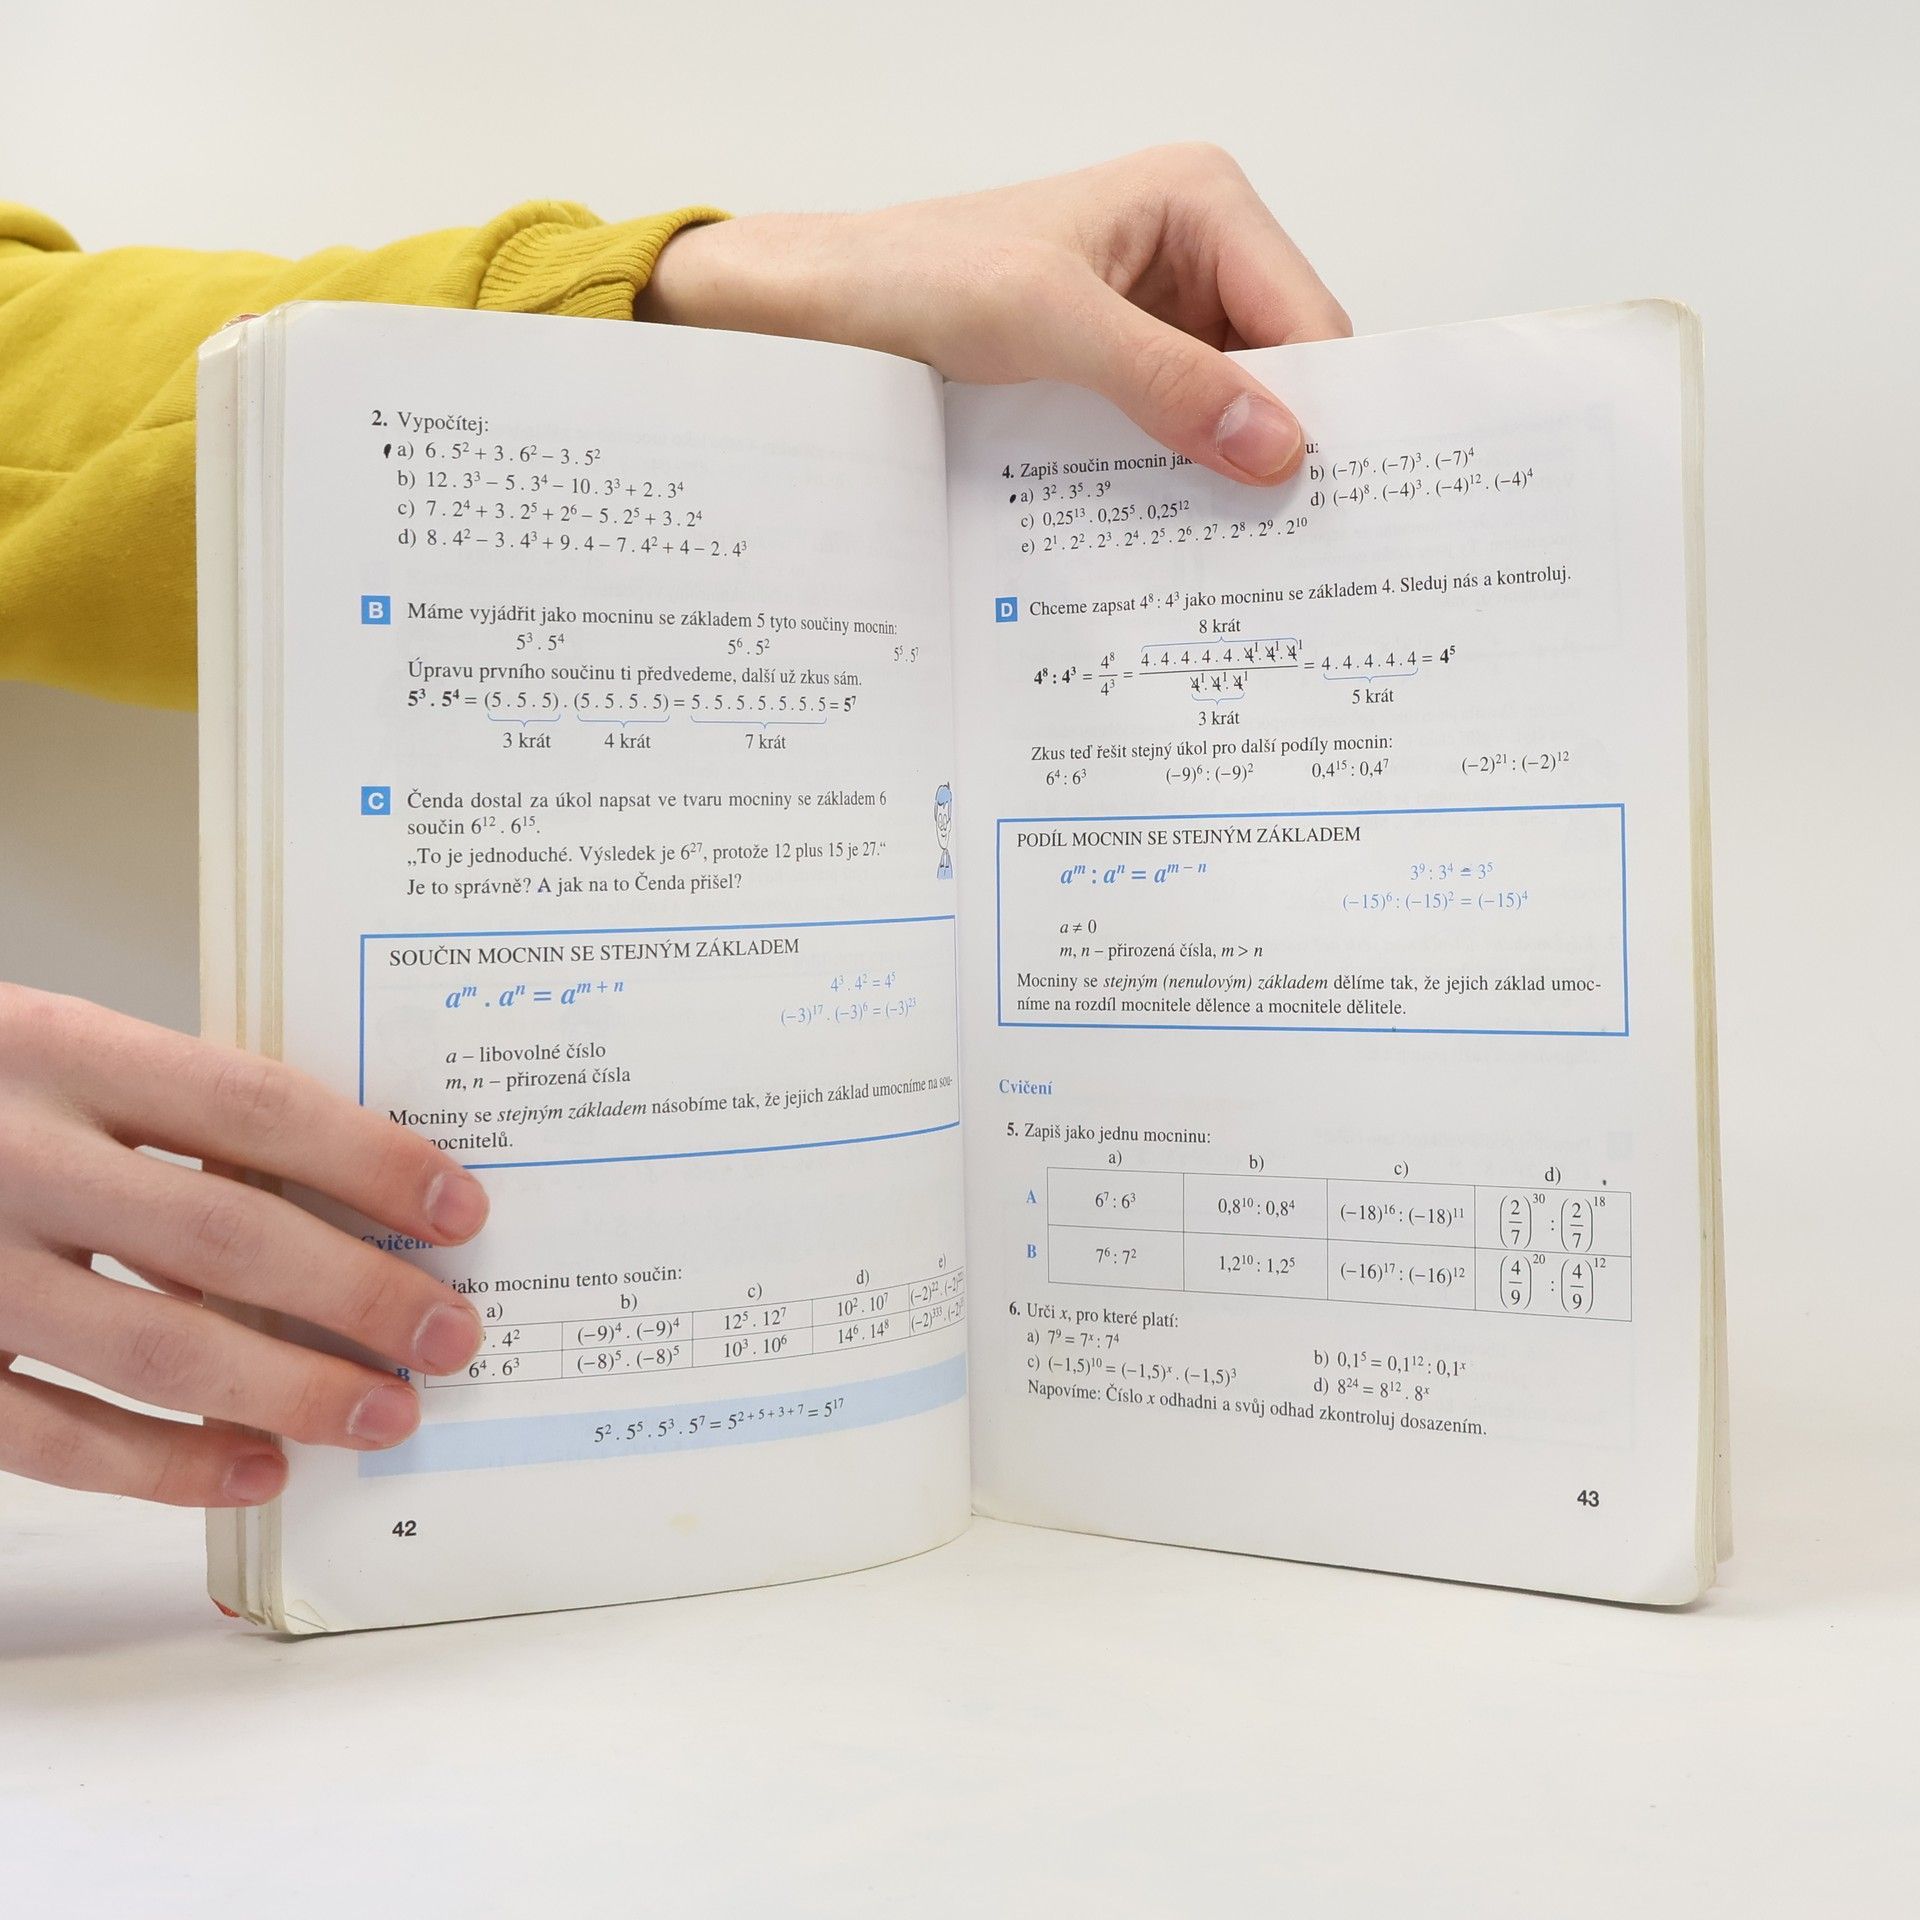 2. Vypočítej:
a) 6 . 5² + 3 . 6² – 3 . 5²
b) 12 . 3³ – 5 . 3⁴ – 10 . 3³ + 2 . 3⁴
c) 7 . 2⁴ + 3 . 2⁵ + 2⁶ – 5 . 2⁵ + 3 . 2⁴
d) 8 . 4² – 3 . 4³ + 9 . 4 – 7 . 4² + 4 – 2 . 4³
B Máme vyjádřit jako mocninu se základem 5 tyto součiny mocnin:
5³ . 5⁴ 5⁶ . 5² 5⁵ . 5⁷
Úpravu prvního součinu ti předvedeme, další už zkus sám.
5³ . 5⁴ = (5 . 5 . 5) . (5 . 5 . 5 . 5) = 5 . 5 . 5 . 5 . 5 . 5 . 5 = 5⁷
3 krát 4 krát 7 krát
C Čenda dostal za úkol napsat ve tvaru mocniny se základem 6
součin 6¹² . 6¹⁵.
„To je jednoduché. Výsledek je 6²⁷, protože 12 plus 15 je 27.“
Je to správně? A jak na to Čenda přišel?
SOUČIN MOCNIN SE STEJNÝM ZÁKLADEM
aᵐ . aⁿ = aᵐ ⁺ ⁿ 4³ . 4² = 4⁵
(–3)¹⁷ . (–3)⁶ = (–3)²³
a – libovolné číslo
m, n – přirozená čísla
Mocniny se stejným základem násobíme tak, že jejich základ umocníme na sou-
mocnitelů.
Cvičení
jako mocninu tento součin:
a) b) c) d) e)
. 4² (–9)⁴ . (–9)⁴ 12⁵ . 12⁷ 10² . 10⁷ (–2)²² . (–2)
B 6⁴ . 6³ (–8)⁵ . (–8)⁵ 10³ . 10⁶ 14⁶ . 14⁸ (–2)³³³ . (–2)
5² . 5⁵ . 5³ . 5⁷ = 5² ⁺ ⁵ ⁺ ³ ⁺ ⁷ = 5¹⁷
42
4. Zapiš součin mocnin u:
a) 3² . 3⁵ . 3⁹ b) (–7)⁶ . (–7)³ . (–7)⁴
c) 0,25¹³ . 0,25⁵ . 0,25¹² d) (–4)⁸ . (–4)³ . (–4)¹² . (–4)⁴
e) 2¹ . 2² . 2³ . 2⁴ . 2⁵ . 2⁶ . 2⁷ . 2⁸ . 2⁹ . 2¹⁰
D Chceme zapsat 4⁸ : 4³ jako mocninu se základem 4. Sleduj nás a kontroluj.
8 krát
4⁸ : 4³ = 4⁸/4³ = 4 . 4 . 4 . 4 . 4 . 4¹ . 4¹ . 4¹ / 4¹ . 4¹ . 4¹ = 4 . 4 . 4 . 4 . 4 = 4⁵
5 krát
3 krát
Zkus teď řešit stejný úkol pro další podíly mocnin:
6⁴ : 6³ (–9)⁶ : (–9)² 0,4¹⁵ : 0,4⁷ (–2)²¹ : (–2)¹²
PODÍL MOCNIN SE STEJNÝM ZÁKLADEM
aᵐ : aⁿ = aᵐ ⁻ ⁿ 3⁹ : 3⁴ = 3⁵
(–15)⁶ : (–15)² = (–15)⁴
a ≠ 0
m, n – přirozená čísla, m > n
Mocniny se stejným (nenulovým) základem dělíme tak, že jejich základ umoc-
níme na rozdíl mocnitele dělence a mocnitele dělitele.
Cvičení
5. Zapiš jako jednu mocninu:
a) b) c) d)
A 6⁷ : 6³ 0,8¹⁰ : 0,8⁴ (–18)¹⁶ : (–18)¹¹ (2/7)³⁰ : (2/7)¹⁸
B 7⁶ : 7² 1,2¹⁰ : 1,2⁵ (–16)¹⁷ : (–16)¹² (4/9)²⁰ : (4/9)¹²
6. Urči x, pro které platí:
a) 7⁹ = 7ˣ : 7⁴ b) 0,1⁵ = 0,1¹² : 0,1ˣ
c) (–1,5)¹⁰ = (–1,5)ˣ . (–1,5)³ d) 8²⁴ = 8¹² . 8ˣ
Napovíme: Číslo x odhadni a svůj odhad zkontroluj dosazením.
43